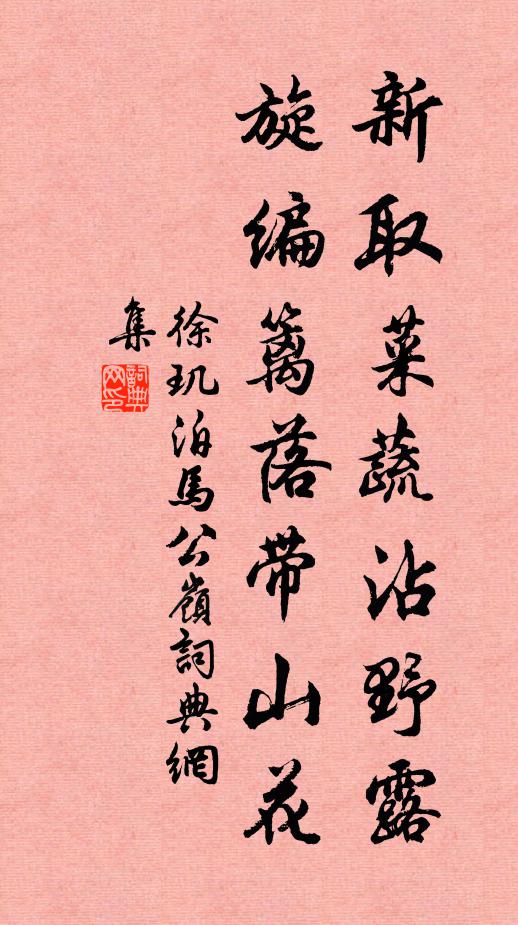 新取菜蔬沾野露
旋编篱落带山花
徐玑泊馬公嶺詞典網
集
詞典
网印